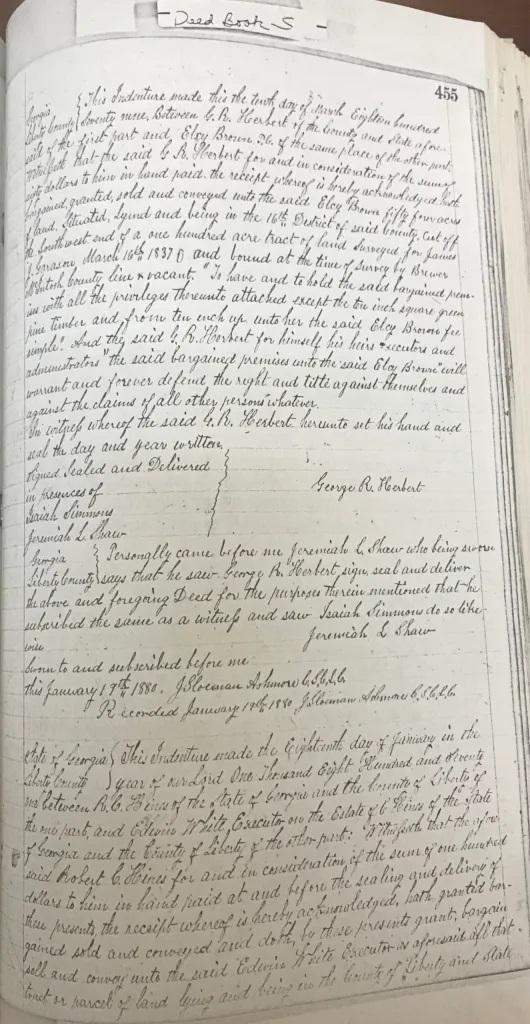 Deed Book S
455
Georgia } This Indenture made this the tenth day of March Eighteen hundred
Liberty County } Seventy nine, Between G. R. Herbert of the County and State afore-
said of the first part and, Elcy Brown of the same place of the other part.
Witnesseth that the said G R. Herbert for and in consideration of the sum of
fifty dollars to him in hand paid. the receipt whereof is hereby acknowledged hath
bargained, granted, sold and conveyed unto the said Elcy Brown fifty four acres
of land, Situated, Lying and being in the 16th District of said County. Cut off
the Southwest end of a one hundred acre tract of land Surveyed for James
March 16th 1837 and bound at the time of Survey by Brewer
McIntosh County line & vacant. "To have and to hold the said bargained prem-
ises with all the privileges thereunto attached except the ten inch square green
pine timber and from ten inch up. unto her the said Elcy Brown fee
simple". And the said G. R. Herbert for himself his heirs Executors and
administrators" the said bargained premises unto the said Elcy Brown" will
warrant and forever defend the right and title against themselves and
against the claims of all other persons whatever.
In witness whereof the said G. R. Herbert hereunto set his hand and
seal the day and year written.
Signed Sealed and Delivered
in Presences of
George R. Herbert
Isaiah Simmons
Jeremiah L. Shaw
Georgia } Personally came before me Jeremiah L. Shaw who being sworn
Liberty County } says that he saw George R. Herbert sign, seal and deliver
the above and foregoing Deed for the purposes therein mentioned that he
subscribed the same as a witness and saw Isaiah Simmons do so like-
wise
Jeremiah L Shaw
Sworn to and subscribed before me
this January 17th 1880. J Slocman Ashmore C.S.C.L.C.
Recorded January 19th 1880 J Slocman Ashmore C.S.C.L.C.
State of Georgia } This Indenture made the Eighteenth day of January in the
Liberty County } year of our Lord One Thousand Eight Hundred and Seventy
one between R. C. Hines of the State of Georgia and the County of Liberty of
the one part, and Edwin White, Executor on the Estate of C Hines of the State
of Georgia and the County of Liberty of the other part: Witnesseth that the afore
said Robert C. Hines for and in consideration of the sum of one hundred
dollars to him in hand paid at and before the sealing and delivery of
these presents, the receipt whereof is hereby acknowledged, hath granted bar-
gained sold and conveyed and doth, by these presents grant, bargain
sell and convey unto the said Edwin White Executor as aforesaid all that
tract or parcel of land lying and being in the County of Liberty and State